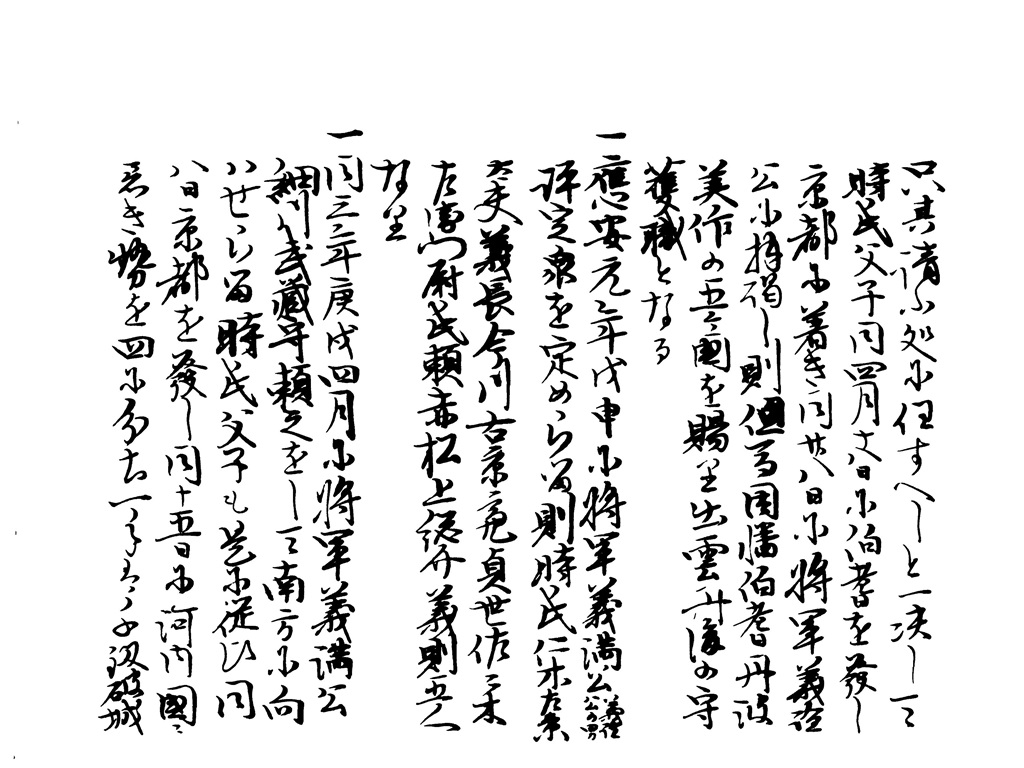 只其請ふ処に任すへしと一决して
時氏父子同四月十八日に伯耆を發し
京都に着き同廿八日に將軍義詮
公に拝謁し則但馬因幡伯耆丹波
美作の五ヶ國を賜里出雲丹後の守
護職となる
一應安元年戊申に將軍義満公義詮公の男
評定衆を定めらる則時氏仁木左京
大夫義長今川右京亮貞世佐々木
左衛門尉氏頼赤松上総介義則五人
な里
一同三年庚戌四月に將軍義満公
細川武藏守頼之をして南方に向
ハせらる時氏父子も是に從ひ同
八日京都を發し同十五日に河内國に
着き勢を四に分志一手ハ千釼破城